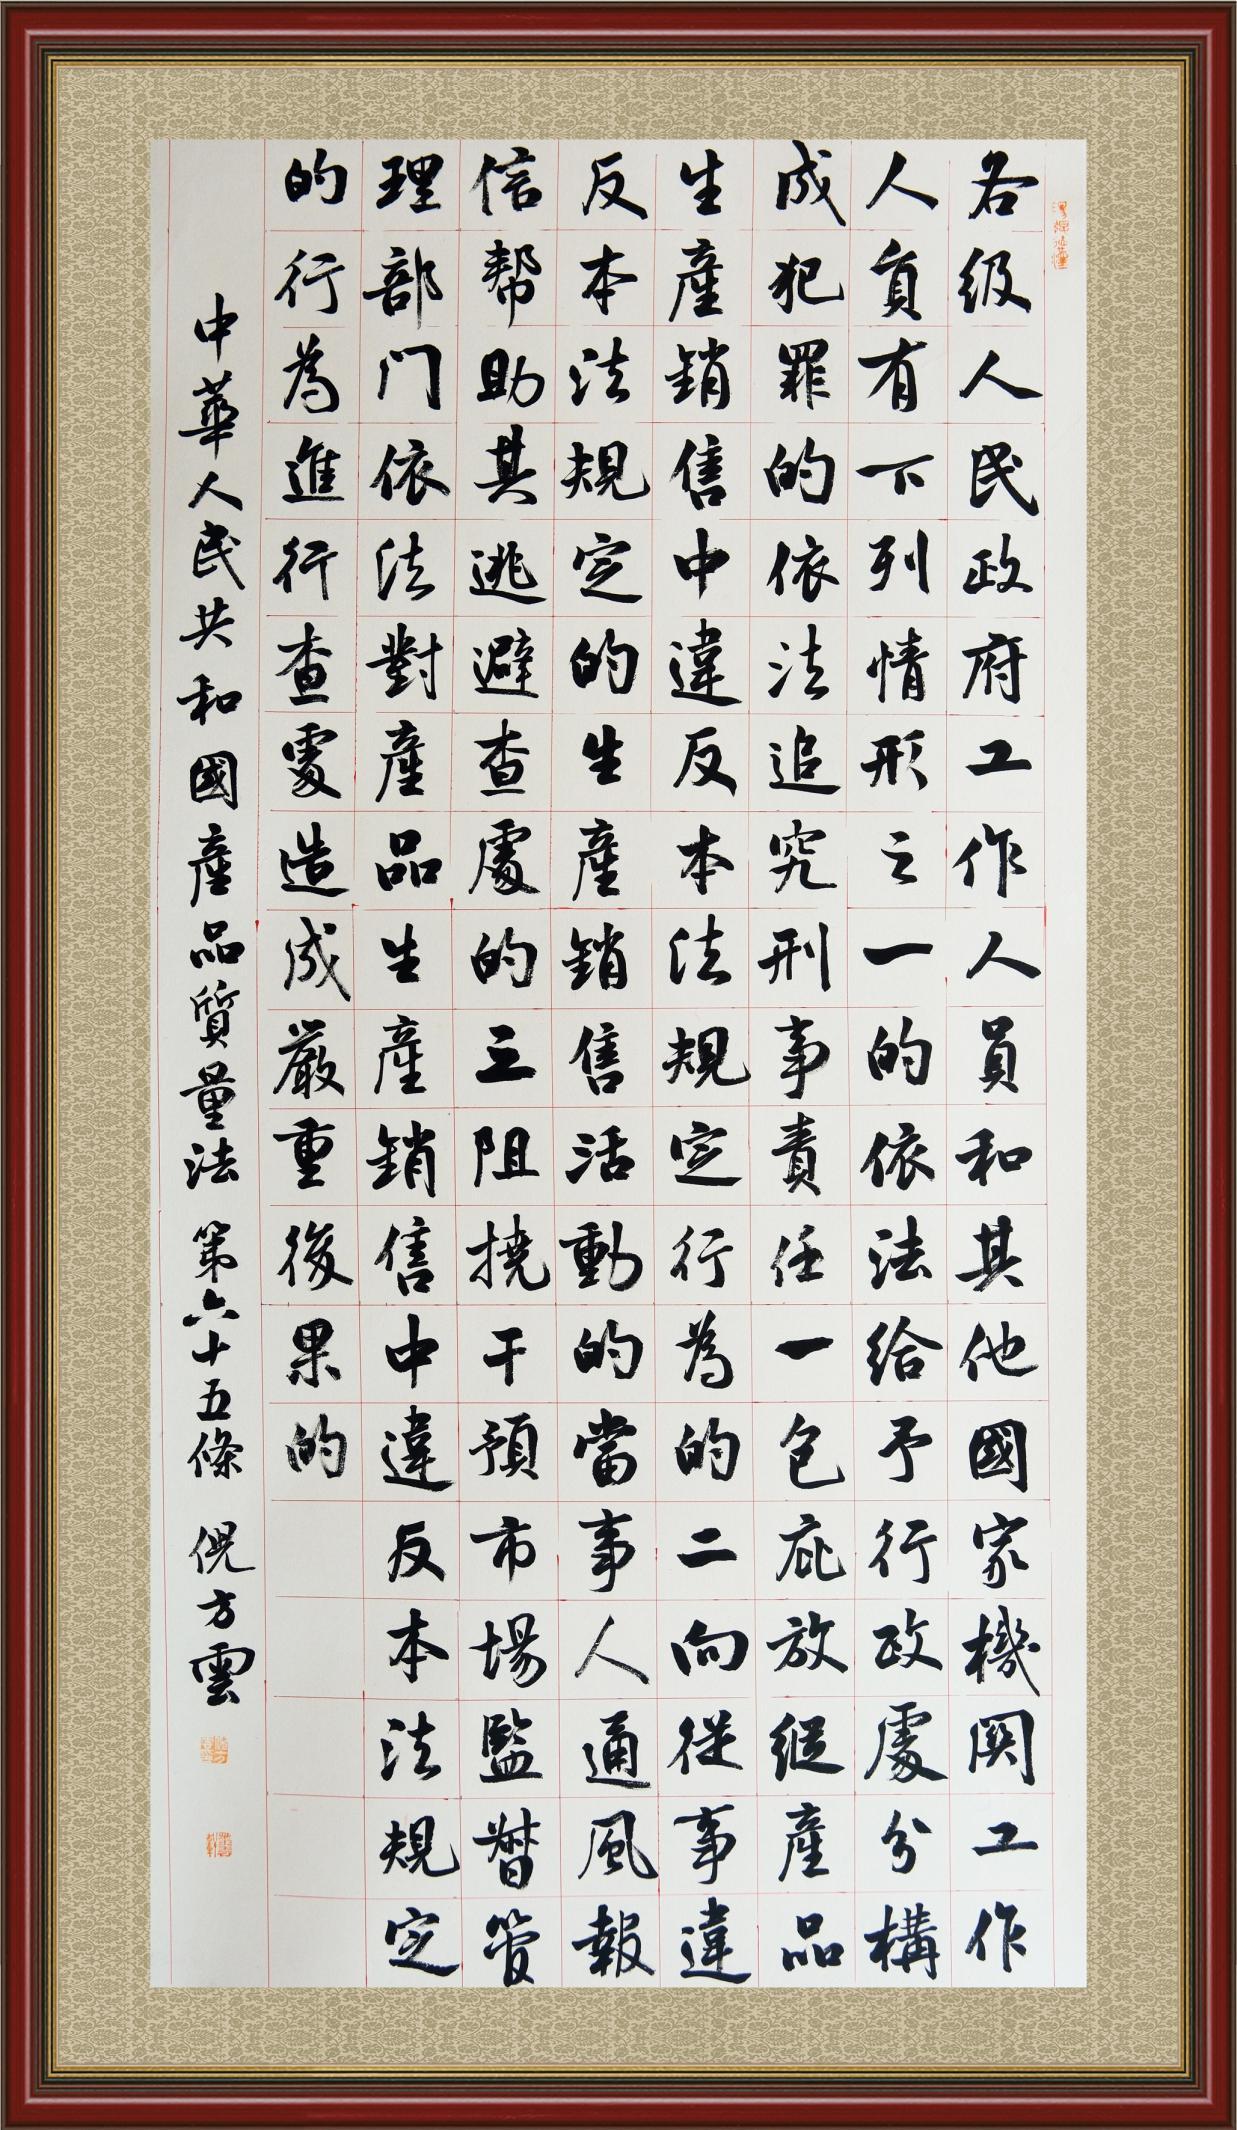 各级人民政府工作人員和其他國家機関工作
人員有下列情形之一的依法给予行政處分構
成犯罪的依法追究刑事責任一包庇放纵產品
生產銷售中違反本法規定行為的二向從事違
反本法規定的生產銷售活動的當事人通風報
信帮助其逃避查處的三阻撓干預市場監督管
理部门依法對產品生產銷售中違反本法規定
的行為進行查處造成嚴重後果的
中華人民共和國產品質量法 第六十五條 倪方雲